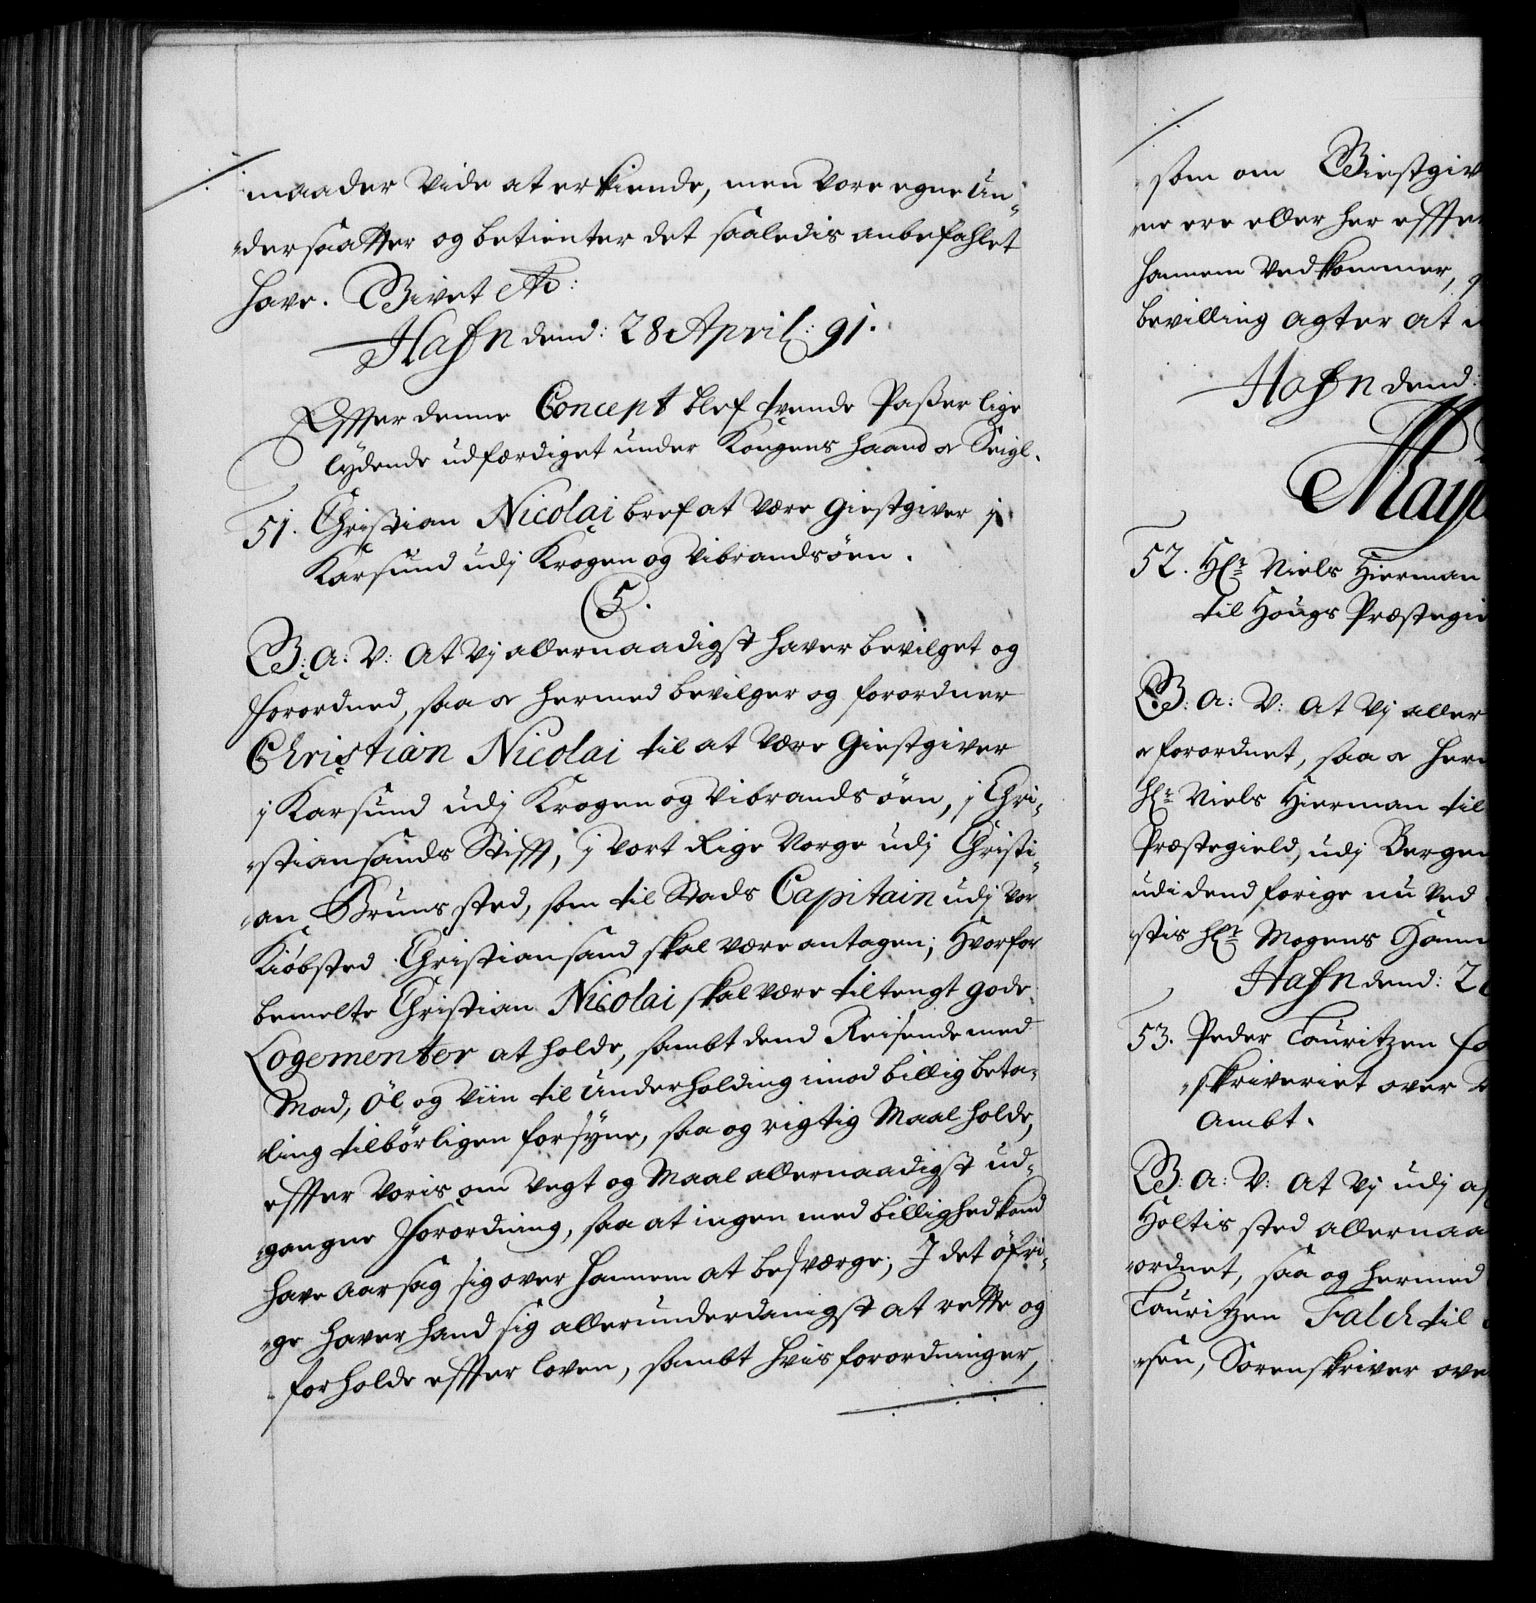 maader vide at erkiende, men vore egne Un-
dersaatter og betienter det saaledis anbefahlet
have. Givet etc:
Hafn dend: 28 April: 91.
Effter denne Concept blef tvende Passer lige
lydende udfærdiget under Kongens haand & Seigl.
51. Christian Nicolai bref at være giestgiver j
Karsund udj Krogen og Vibrandsöen.
5.
G: A: V: At Vj allernaadigst haver bevilget og
forordned, saa & hermed bevilger og forordner
Christian Nicolai til at være Giestgiver
j Karsund udj Krogen og Vibrandsöen, j Chri-
stiansands Stifft, j vort Rige Norge udj Christi-
an Bruns sted, som til Stads Capitain udj vor
Kiöbsted Christiansand skal være antagen; Hvorfor
bemelte Christian Nicolai skal være tiltengt gode
Logementer at holde, sambt dend Reisende med
Mad, Öl og Viin til Underholding imod billig beta-
ling tilbörligen forsyne, saa og rigtig Maal holde,
effter Voris om Vegt og Maal allernaadigst ud-
gangne Forordning, saa at ingen med billighed kand
have Aarsag sig over hannem at besværge; I det öfri-
ge haver hand sig allerunderdanigst at rette og
forholde effter loven, sambt hvis forordninger,
som om Giestgiv
ne ere eller her effter
hannem vedkommer,
bevilling agter at
Hafn dend:
May
52. Hr Niels Hierman
til Hougs Præstegie
G: A: V: At Vj aller
& forordnet, saa & her
Hr Niels Hierman til
Præstegield, udj Bergen
udi dend forige nu ved
stis Hr Mogens
Hafn dend: 2
53. Peder Lauritzen
skriveriet over
Ambt.
G: A: V: At Vj udj af
Holtis sted allernaa
ordnet, saa og hermed
Lauritzen Falch til
sen, Sorenskriver ove